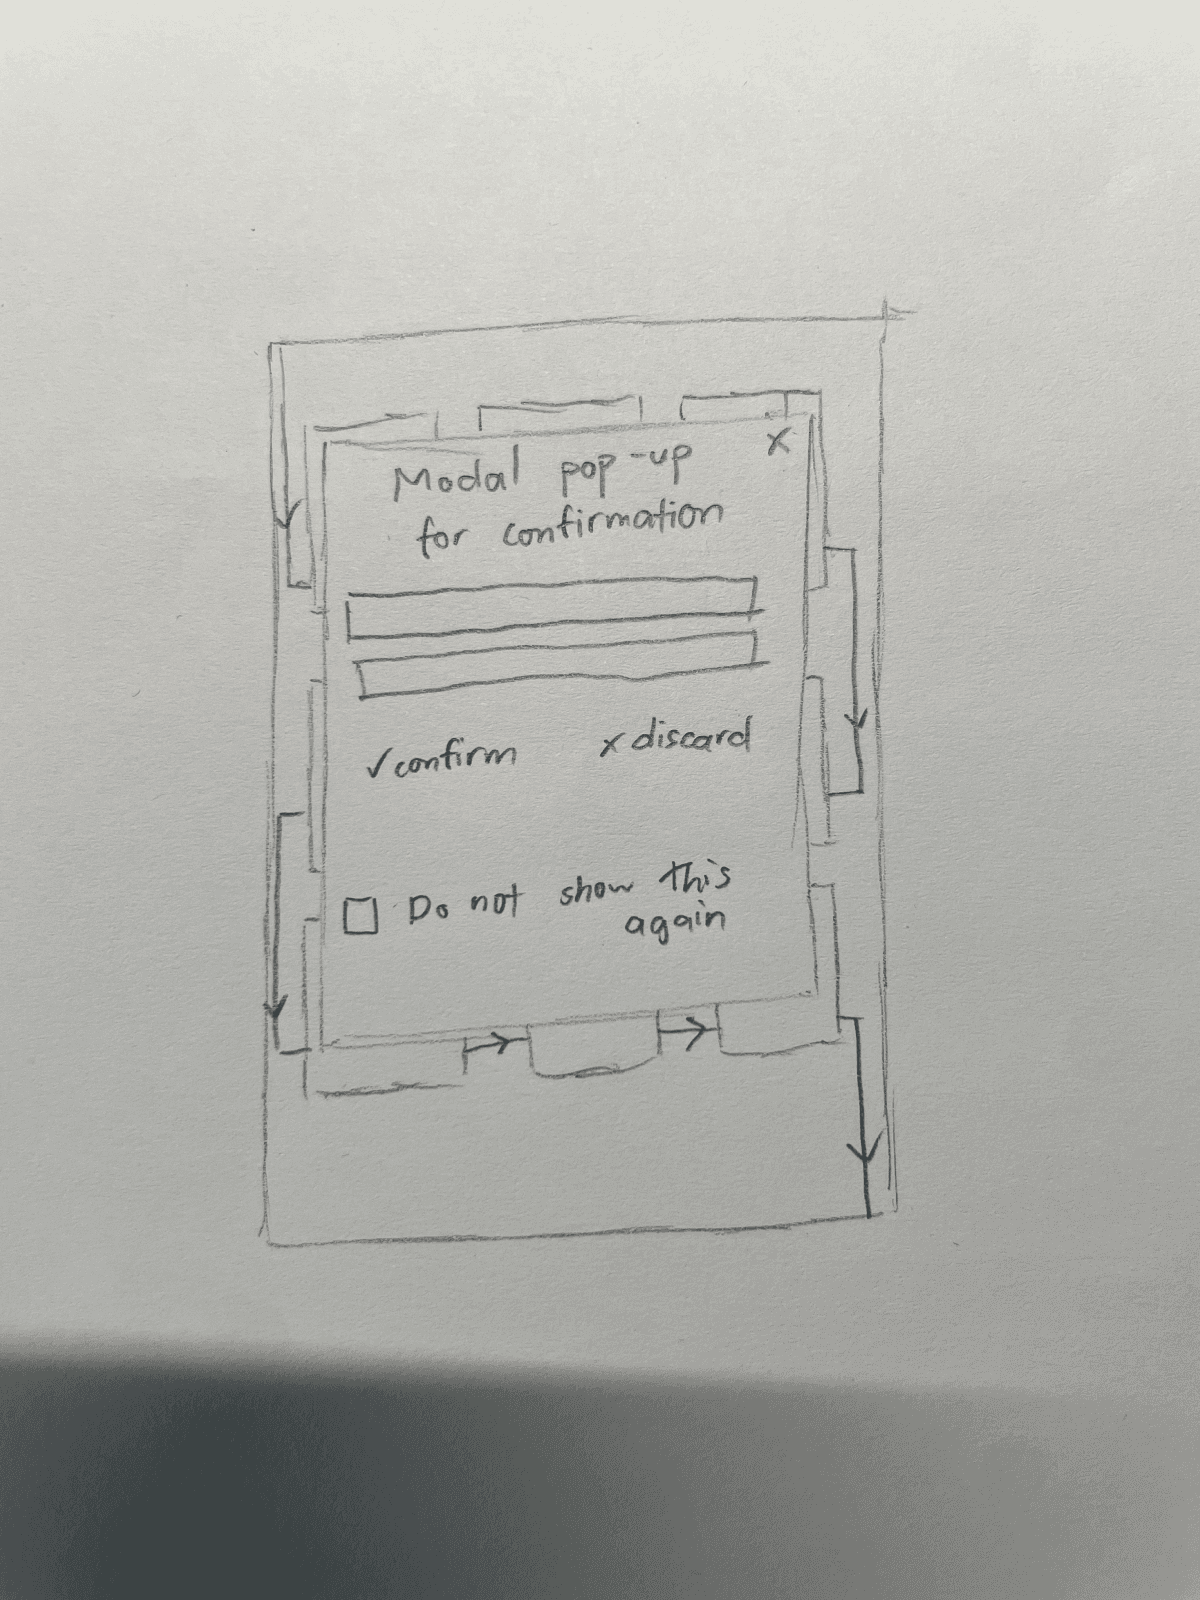 x
Modal pop-up
for confirmation
✓confirm x discard
Do not show this
again